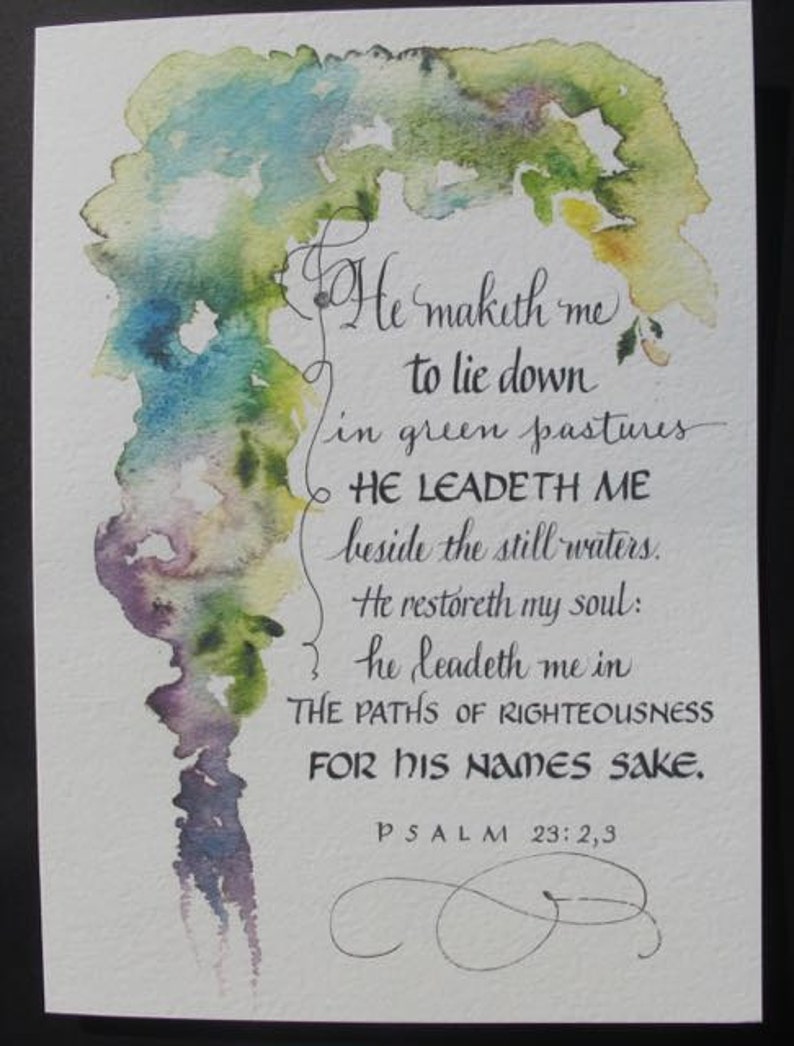 He maketh me
to lie down
in green pastures
HE LEADETH ME
beside the still waters.
He restoreth my soul:
he leadeth me in
THE PATHS OF RIGHTEOUSNESS
FOR HIS NAMES SAKE.
PSALM 23:2,3